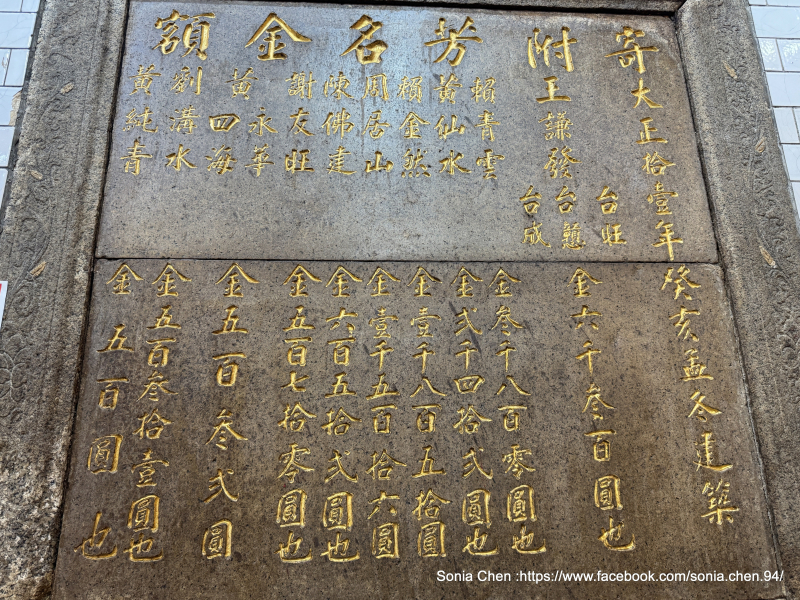 寄附芳名金額
大正拾壹年癸亥孟冬建築
王謙發 台旺 台 台成 金六千叁百圓也
賴青雲 金叁千八百零圓也
黃仙水 金弍千四拾弍圓也
賴金然 金壹千八百五拾圓
周居山 金壹千五百拾六圓
陳佛建 金六百五拾弍圓也
謝友旺 金五百七拾零圓也
黃 永華 四海 金五百叁弍圓
劉溝水 金五百叁拾壹圓也
黃純青 金五百圓也
Sonia Chen :https://www.facebook.com/sonia.chen.94/